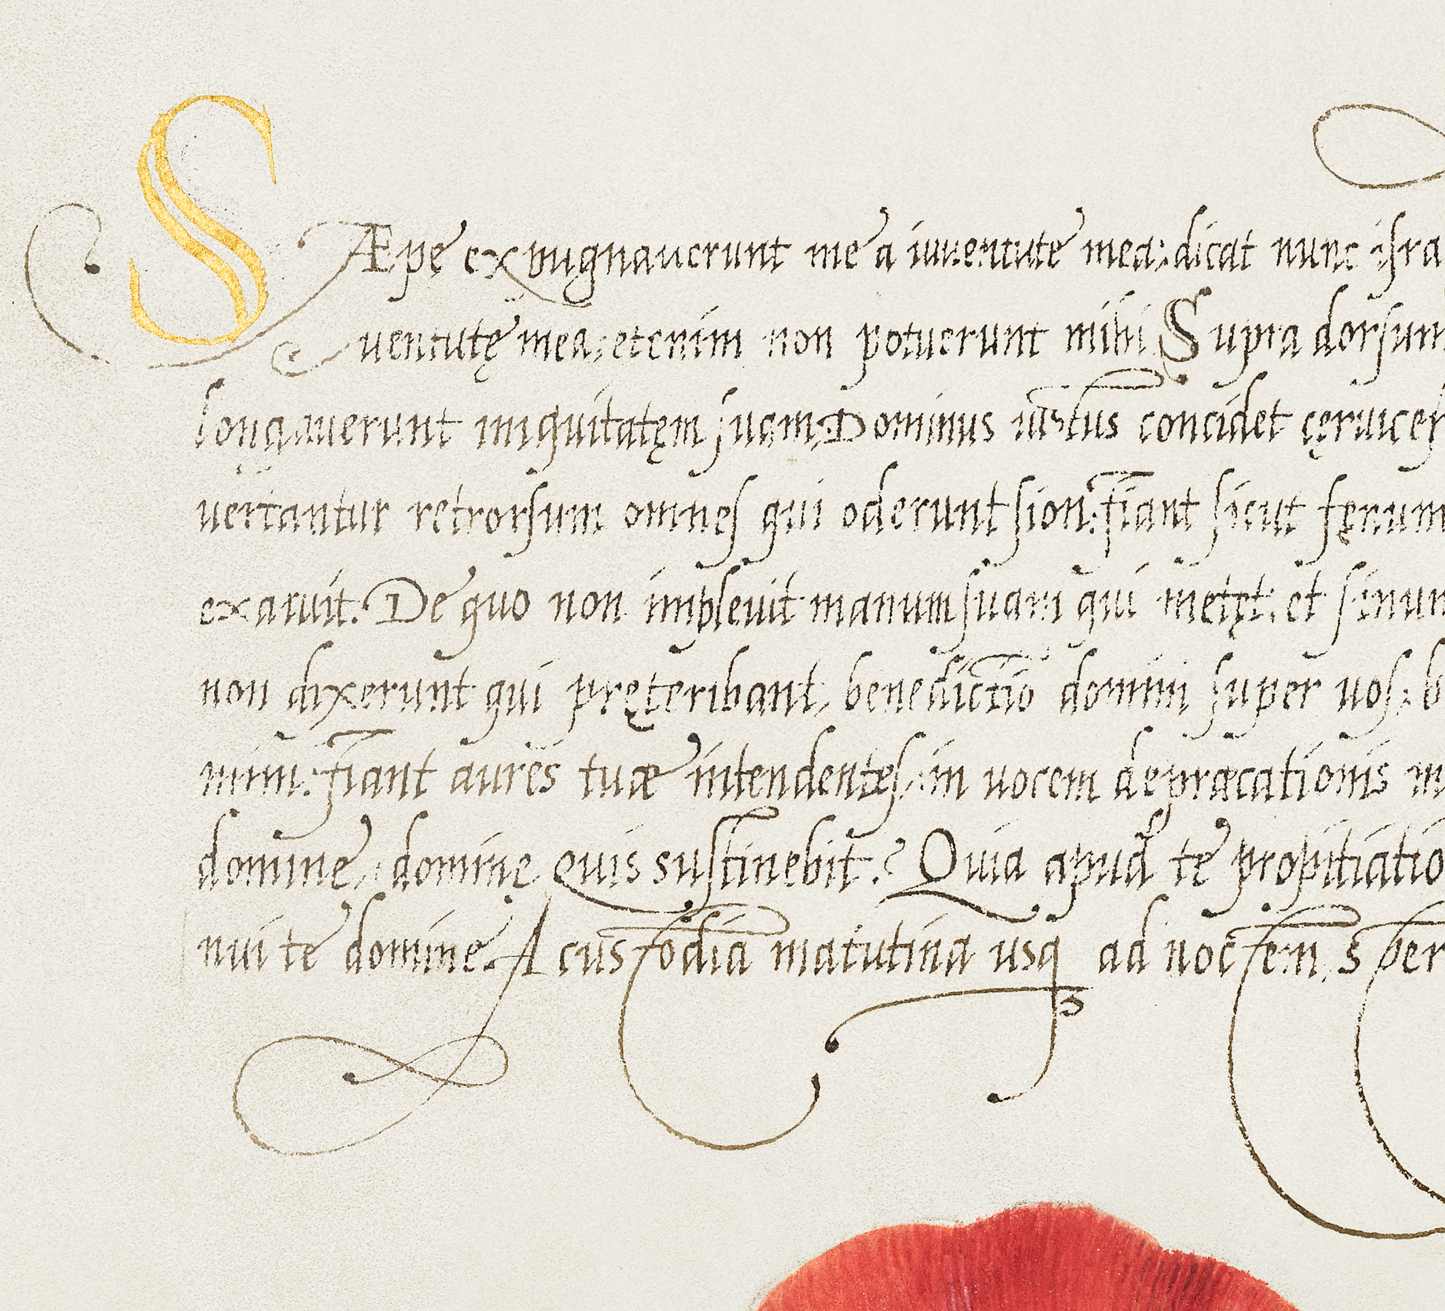 SÆpe expugnaverunt me a iuventute mea: dicat nunc isra
ventutę mea, etenim non potuerunt mihi Supra dorsum
longaverunt iniquitatęm suam Dominus iustus concidet cęrvices
vertantur retrorsum omnes qui oderunt sion: fiant sicut fęnum
exaruit. De quo non implevit manum suam qui metęt: et sinum
non dixerunt qui pręteribant, benedictio domini super vos: b
mini: fiant aures tuæ intendentes: in vocem depræcationis m
domine, domine quis sustinebit? Quia apud te propitiatio
nui te domine. A custodia matutina usq3 ad noctem, sper